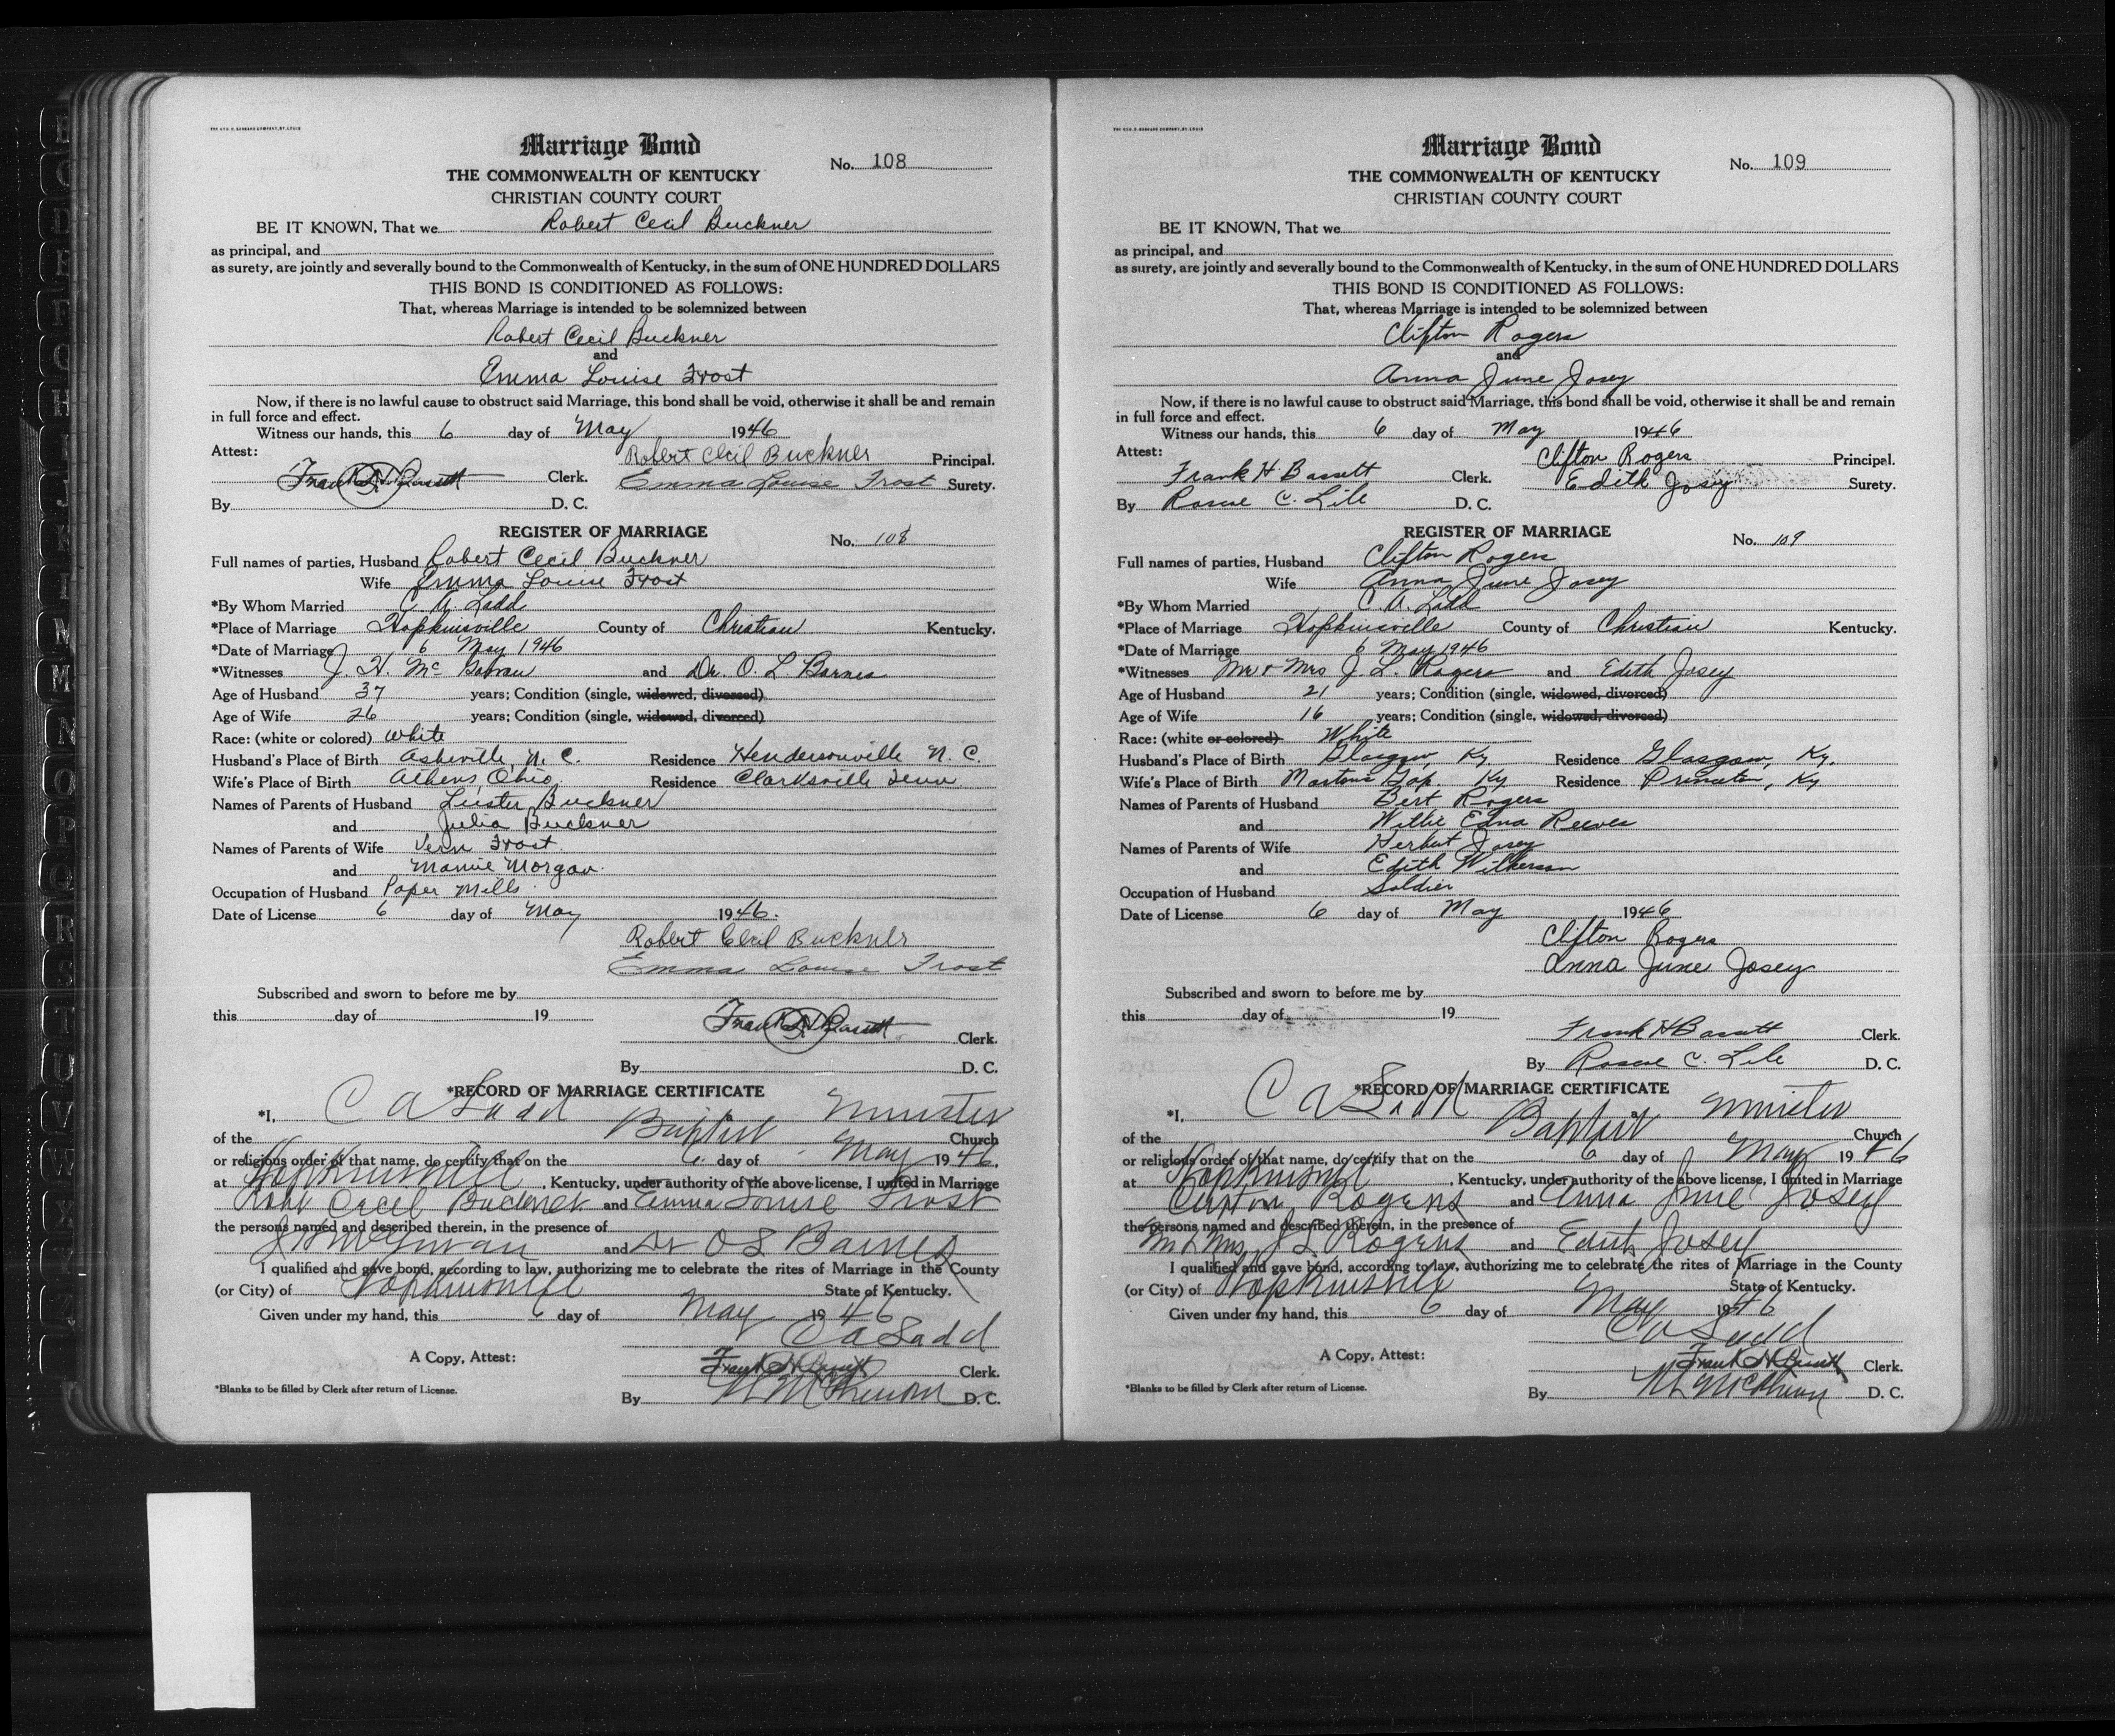 THE GEO. D. BARNARD COMPANY, ST. LOUIS
Marriage Bond
No. 108
THE COMMONWEALTH OF KENTUCKY
CHRISTIAN COUNTY COURT
BE IT KNOWN, That we Robert Cecil Buckner
as principal, and
as surety, are jointly and severally bound to the Commonwealth of Kentucky, in the sum of ONE HUNDRED DOLLARS
THIS BOND IS CONDITIONED AS FOLLOWS:
That, whereas Marriage is intended to be solemnized between
Robert Cecil Buckner
and
Emma Louise Frost
Now, if there is no lawful cause to obstruct said Marriage, this bond shall be void, otherwise it shall be and remain
in full force and effect.
Witness our hands, this 6 day of May 1946
Attest: Robert Cecil Buckner Principal.
Frank H Bassett Clerk. Emma Louise Frost Surety.
By D. C.
REGISTER OF MARRIAGE
No. 108
Full names of parties, Husband Robert Cecil Buckner
Wife Emma Louise Frost
*By Whom Married C. A. Ladd
*Place of Marriage Hopkinsville County of Christian Kentucky.
*Date of Marriage 6 May 1946
*Witnesses J. H. Mc and Dr. O. L Barnes
Age of Husband 37 years; Condition (single, widowed, divorced)
Age of Wife 26 years; Condition (single, widowed, divorced)
Race: (white or colored) White
Husband's Place of Birth Asheville, N. C. Residence Hendersonville N. C.
Wife's Place of Birth Athens, Ohio. Residence Clarksville Tenn
Names of Parents of Husband Luster Buckner
and Julia Buckner
Names of Parents of Wife Vern Frost.
and Mamie Morgan.
Occupation of Husband Paper Mills.
Date of License 6 day of May 1946.
Robert Cecil Buckner
Emma Louise Frost
Subscribed and sworn to before me by
this day of 19
Frank H Bassett
Clerk.
By D. C.
*RECORD OF MARRIAGE CERTIFICATE
*I, C A Ladd Minister
of the Baptist Church
or religious order of that name, do certify that on the 6 day of May 1946.
at Hopkinsville, Kentucky, under authority of the above license, I united in Marriage
Robt Cecil Buckner and Emma Louise Frost
the persons named and described therein, in the presence of
and Dr O L Barnes
I qualified and gave bond, according to law, authorizing me to celebrate the rites of Marriage in the County
(or City) of Hopkinsville State of Kentucky.
Given under my hand, this 6 day of May 1946
C A Ladd
A Copy, Attest: Frank H Bassett Clerk.
*Blanks to be filled by Clerk after return of License.
By D. C.
THE GEO. D. BARNARD COMPANY, ST. LOUIS
Marriage Bond
No. 109
THE COMMONWEALTH OF KENTUCKY
CHRISTIAN COUNTY COURT
BE IT KNOWN, That we
as principal, and
as surety, are jointly and severally bound to the Commonwealth of Kentucky, in the sum of ONE HUNDRED DOLLARS
THIS BOND IS CONDITIONED AS FOLLOWS:
That, whereas Marriage is intended to be solemnized between
Clifton Rogers
and
Anna June Josey
Now, if there is no lawful cause to obstruct said Marriage, this bond shall be void, otherwise it shall be and remain
in full force and effect.
Witness our hands, this 6 day of May 1946
Attest: Clifton Rogers Principal.
Frank H. Bassett Clerk. Edith Josey Surety.
By Roscoe C. Lile D. C.
REGISTER OF MARRIAGE
No. 109
Full names of parties, Husband Clifton Rogers
Wife Anna June Josey
*By Whom Married C. A. Ladd
*Place of Marriage Hopkinsville County of Christian Kentucky.
*Date of Marriage 6 May 1946
*Witnesses Mr + Mrs J. L. Rogers and Edith Josey
Age of Husband 21 years; Condition (single, widowed, divorced)
Age of Wife 16 years; Condition (single, widowed, divorced)
Race: (white or colored) White
Husband's Place of Birth Glasgow, Ky Residence Glasgow, Ky.
Wife's Place of Birth Mortons Gap. Ky Residence Princeton, Ky.
Names of Parents of Husband Bert Rogers
and Willie Edna Reeves
Names of Parents of Wife Herbert Josey
and Edith Wilkerson
Occupation of Husband Soldier
Date of License 6 day of May 1946
Clifton Rogers
Anna June Josey
Subscribed and sworn to before me by
this day of 19
Frank H Bassett Clerk.
By Roscoe C. Lile D. C.
*RECORD OF MARRIAGE CERTIFICATE
*I, C A Ladd Minister
of the Baptist Church
or religious order of that name, do certify that on the 6 day of May 1946
at Hopkinsville, Kentucky, under authority of the above license, I united in Marriage
Clifton Rogers and Anna June Josey
the persons named and described therein, in the presence of
Mr & Mrs J L Rogers and Edith Josey
I qualified and gave bond, according to law, authorizing me to celebrate the rites of Marriage in the County
(or City) of Hopkinsville State of Kentucky.
Given under my hand, this 6 day of May 1946
C A Ladd
A Copy, Attest: Frank H Bassett Clerk.
*Blanks to be filled by Clerk after return of License.
By D. C.